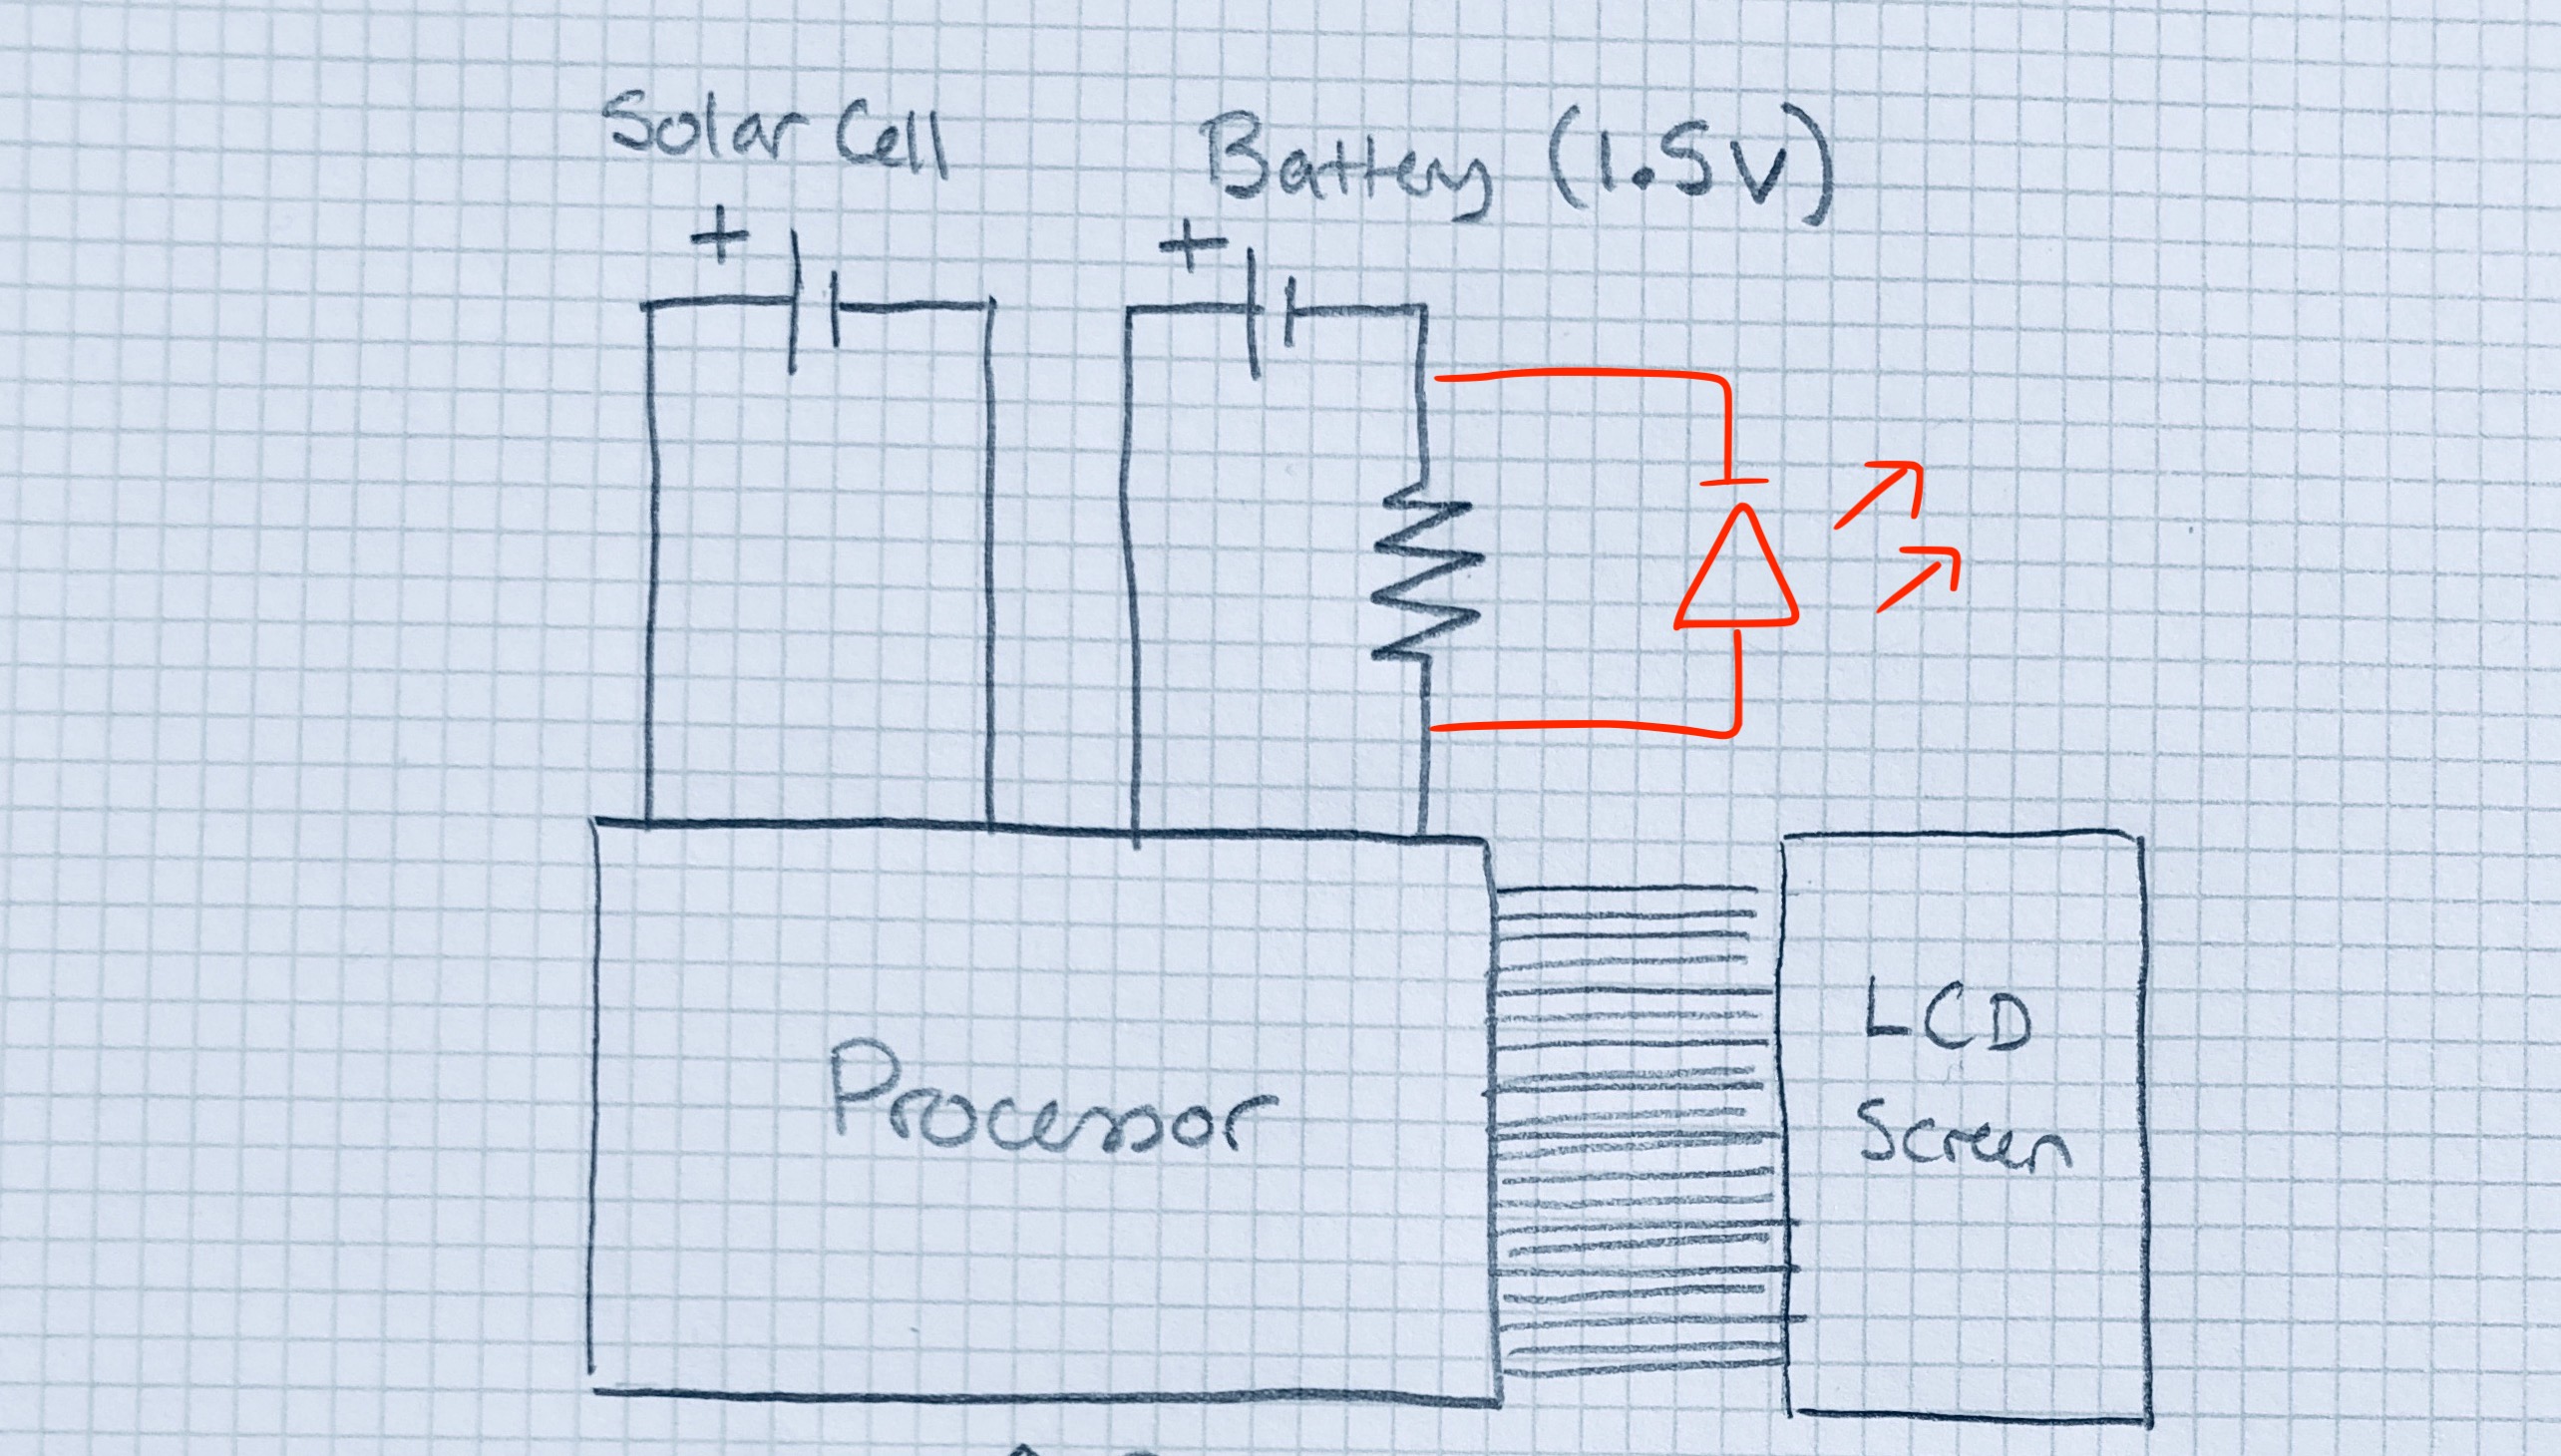 Solar Cell
Battery (1.5V)
+
+
Processor
LCD
Screen